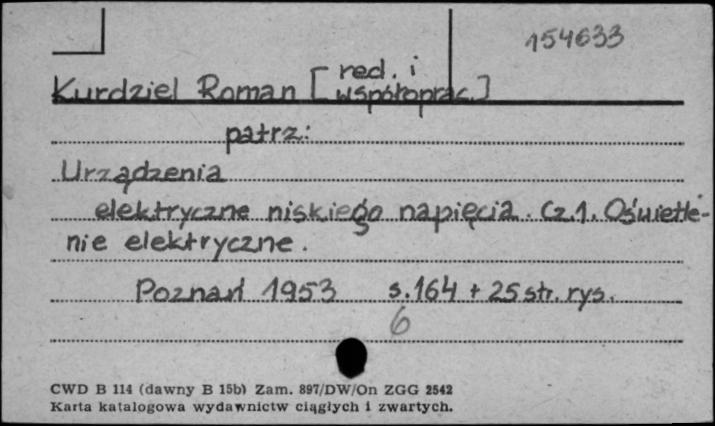 154633
Kurdziel Roman [red. i współoprac.]
patrz:
Urządzenia
elektryczne niskiego napięcia. Cz.1. Oświetle-
nie elektryczne.
Poznań 1953 s.164 + 25 str. rys.
6
CWD B 114 (dawny B 15b) Zam. 897/DW/On ZGG 2542
Karta katalogowa wydawnictw ciągłych i zwartych.